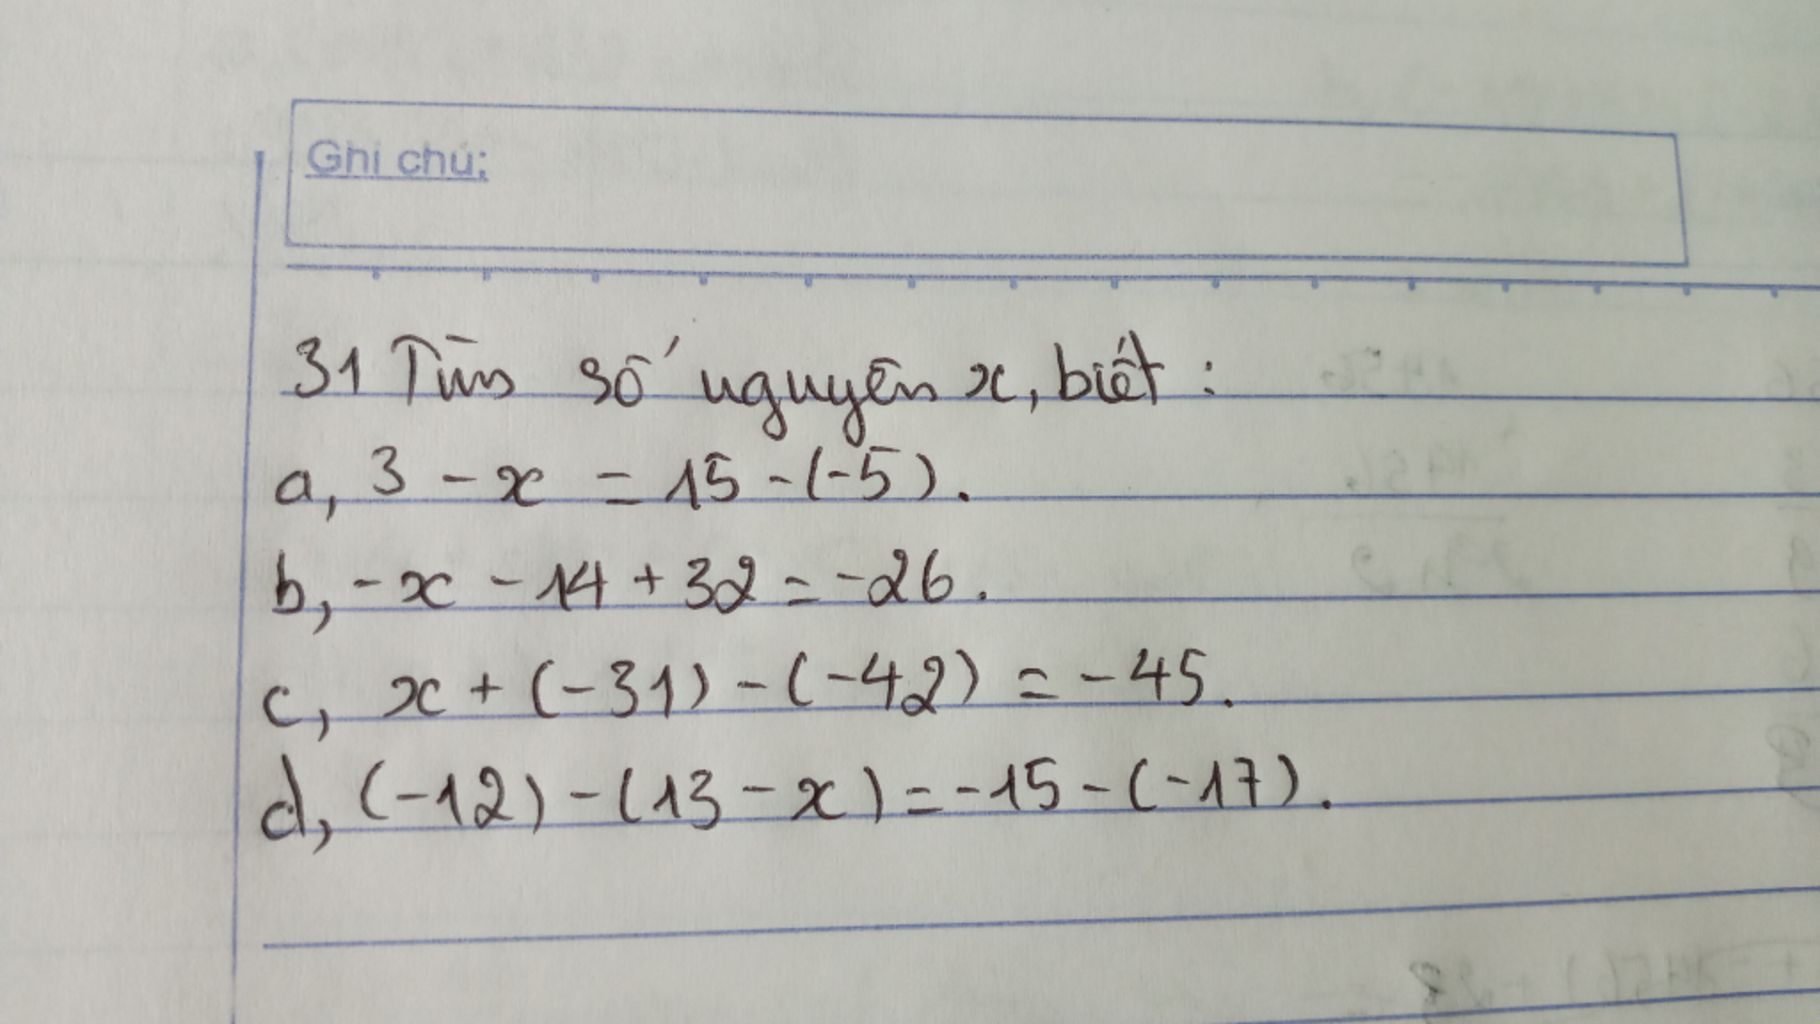 Ghi chú:
31 Tìm số nguyên x, biết :
a, 3 - x = 15 - (-5).
b, - x - 14 + 32 = -26.
c, x + (-31) - (-42) = -45.
d, (-12) - (13 - x) = -15 - (-17).